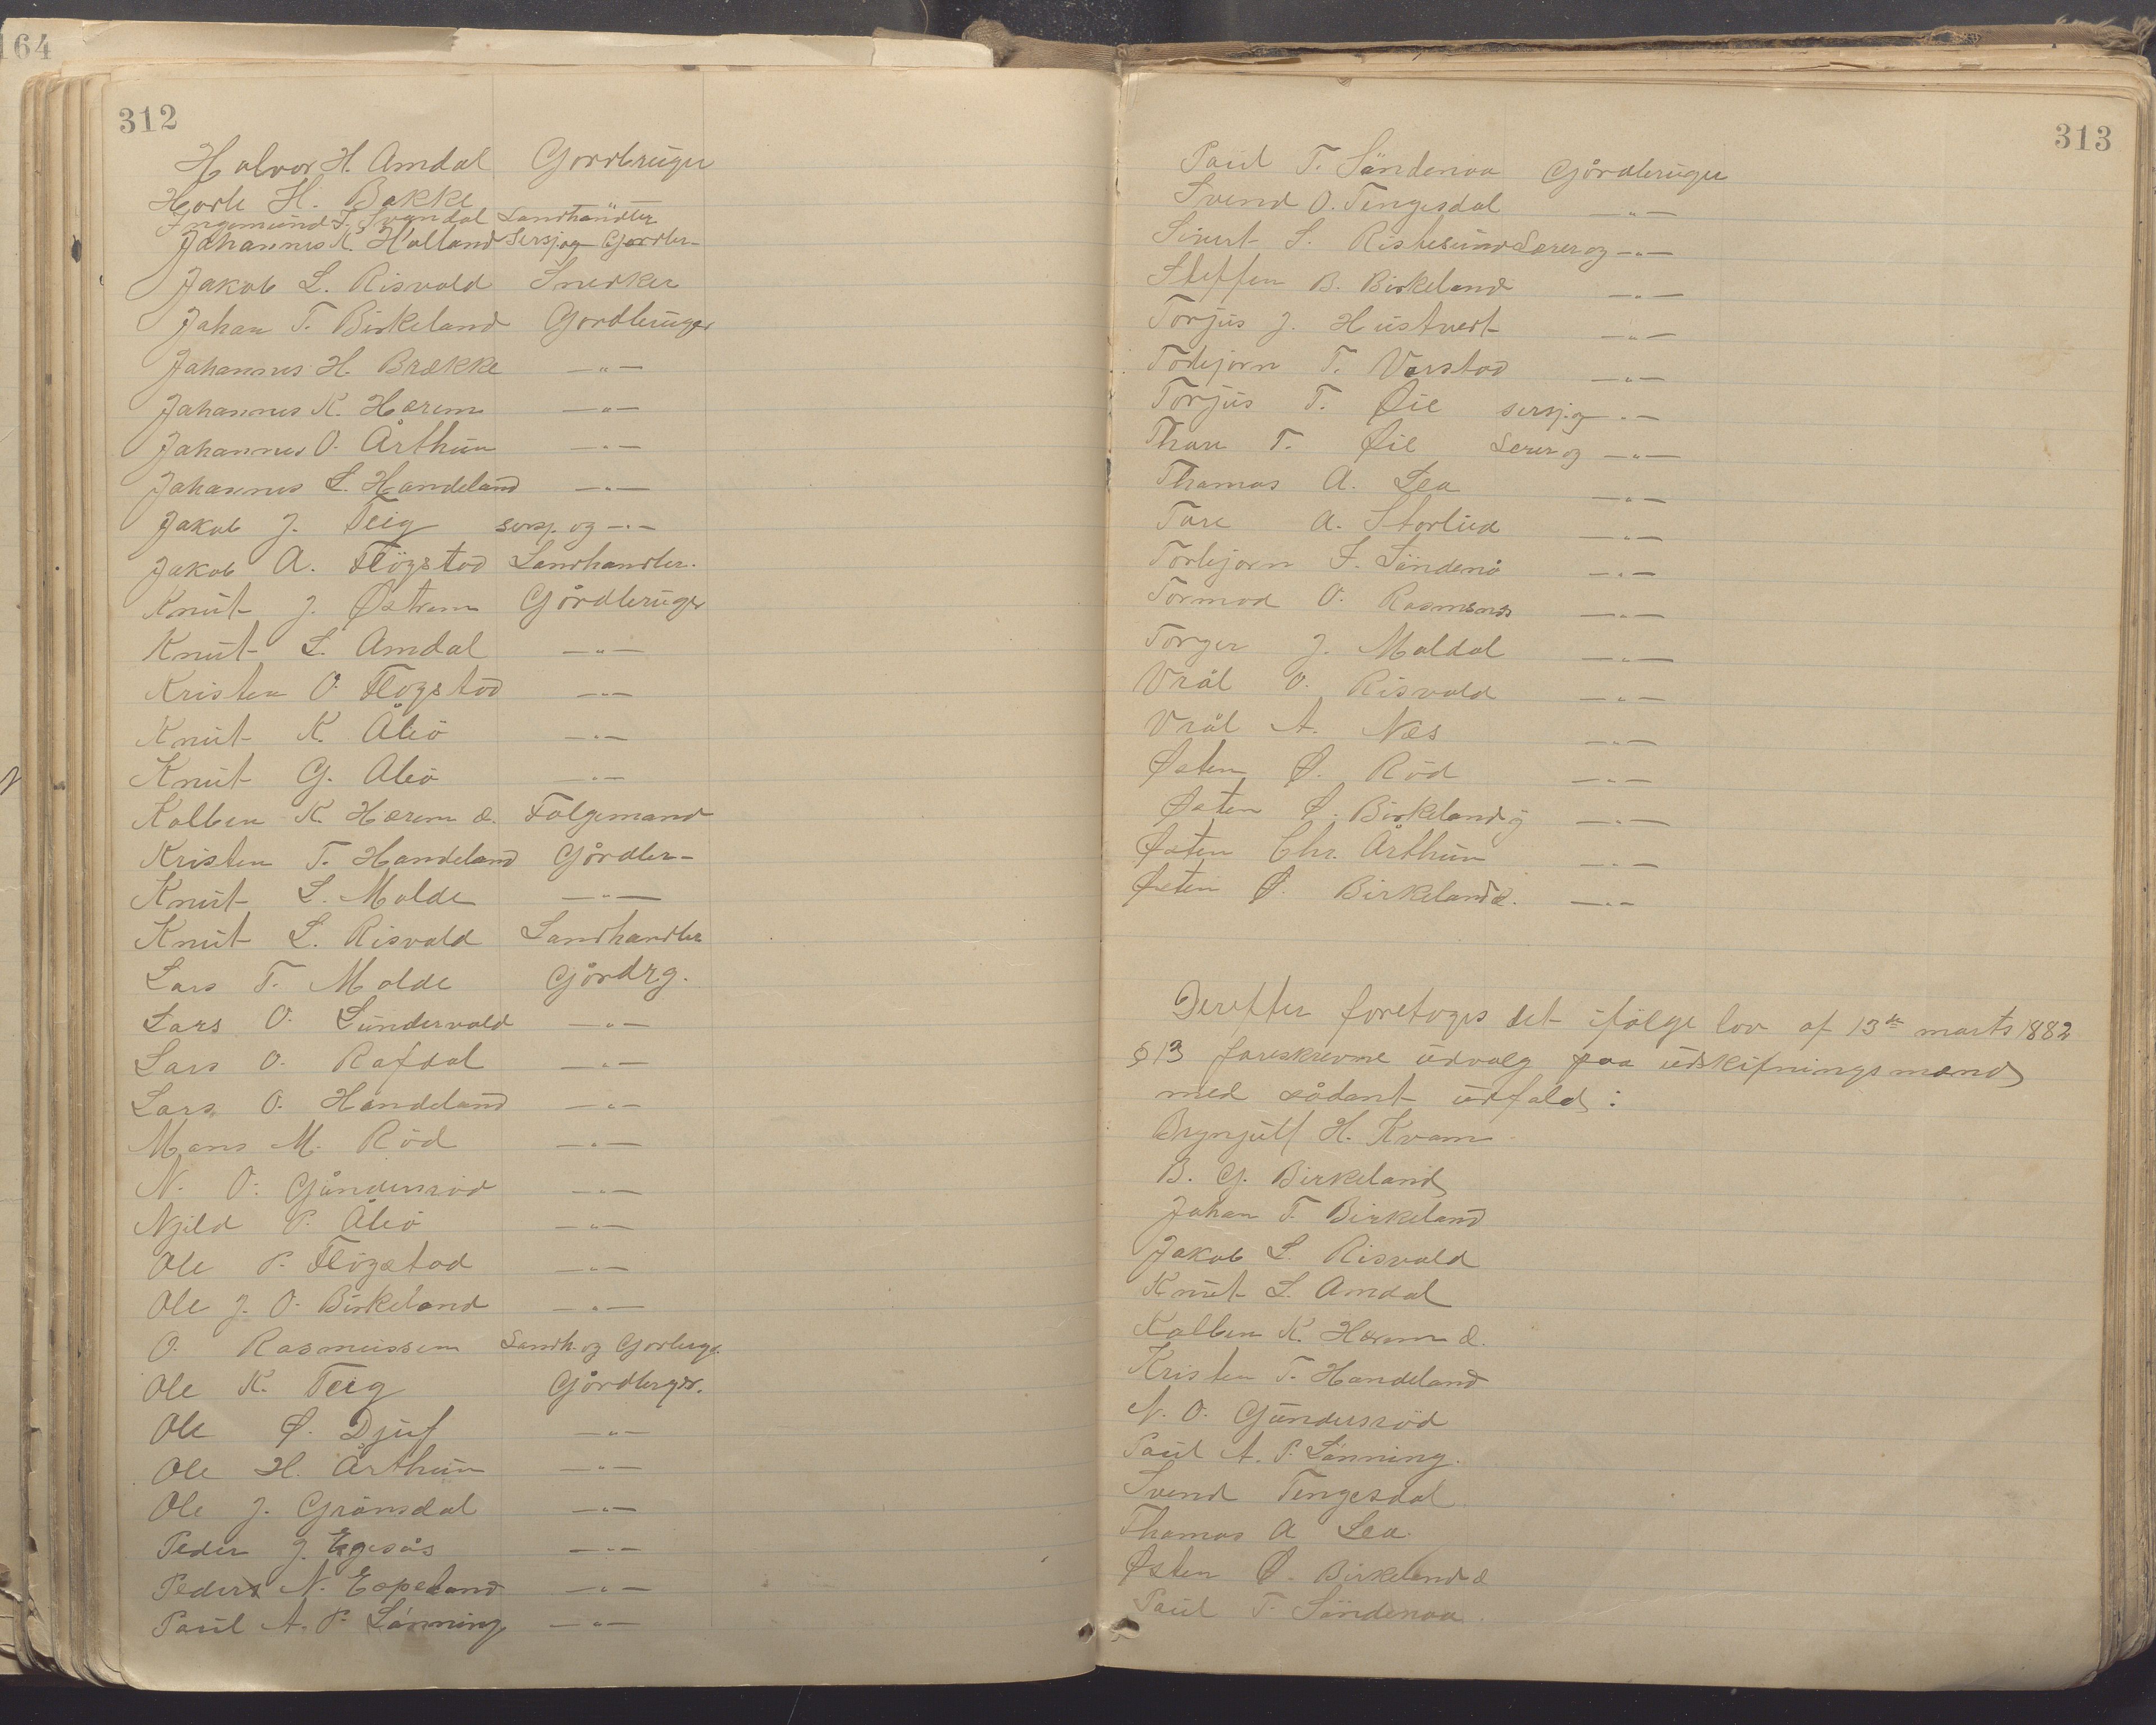 164
312
Halvor H. Amdal Gordbruger
Horle H. Bakke
Ingemund T. Svandal Landhandler
Johannes K. Hålland Sersj og Gordbr-
Jakob L. Risvold Snedker
Johan T. Birkeland Gordbruger
Johannes H. Brække —"—
Johannes K. Hærem —"—
Johannes O. Århun —"—
Johannes L. Handeland —"—
Jakob J. Teig sersj. og —"—
Jakob A. Fløgstad Landhandler.
Knut J. Østrem Gårdbruger
Knut L. Amdal —"—
Kristen O. Fløgstad —"—
Knut K. Åbø —"—
Knut G. Åbø —"—
Kolben K. Hærem æ. Folgemand
Kristen T. Handeland Gårdbr-
Knut L. Molde —"—
Knut L. Risvold Landhandler
Lars T. Molde Gårdrg.
Lars O. Sundervold —"—
Lars O. Rafdal —"—
Lars O. Handeland —"—
Mons M. Rød —"—
N. O. Gundersrød —"—
Njeld P. Åbø —"—
Ole P. Fløgstad —"—
Ole J. O. Birkeland —"—
O. Rasmussen Landh. og Gorbrugr.
Ole K. Teig Gårdbrger.
Ole Ø. Djuf —"—
Ole H. Århun —"—
Ole J. Grønsdal —"—
Peder J. Egesås —"—
Peder N. Espeland —"—
Paul A. P. Lønning —"—
313
Paul T. Søndenaa Gårdbruger
Svend O. Tengesdal —"—
Sivert S. Ristesund Lærer og —"—
Steffen B. Birkeland —"—
Torjus J. Hustvert —"—
Torbjorn T. Varstad —"—
Torjus T. Øie sersj. og —"—
Thore T. Øie Lærer og —"—
Thomas A. Lea —"—
Tore A. Storlied —"—
Torbjorn S. Søndenå —"—
Tormod O. Rasmsnes —"—
Torger J. Moldal —"—
Vrål O. Risvold —"—
Vrål A. Næs —"—
Østen Ø. Rød —"—
Østen Ø. Birkeland y —"—
Østen Chr. Århun —"—
Østen Ø. Birkeland æ. —"—
Derefter foretoges det ifølge lov af 13de marts 1882
§ 13 foreskrevne udvalg paa udskifningsmænd
med sådant udfald:
Brynjulf H. Kvam
B. G. Birkeland
Johan T. Birkeland
Jakob L. Risvold
Knut L. Amdal
Kolben K. Hærem æ.
Kristen T. Handeland
N. O. Gundersrød
Paul A. P. Lønning.
Svend Tengesdal
Thomas A Lea
Østen Ø. Birkeland æ
Paul T. Søndenaa.